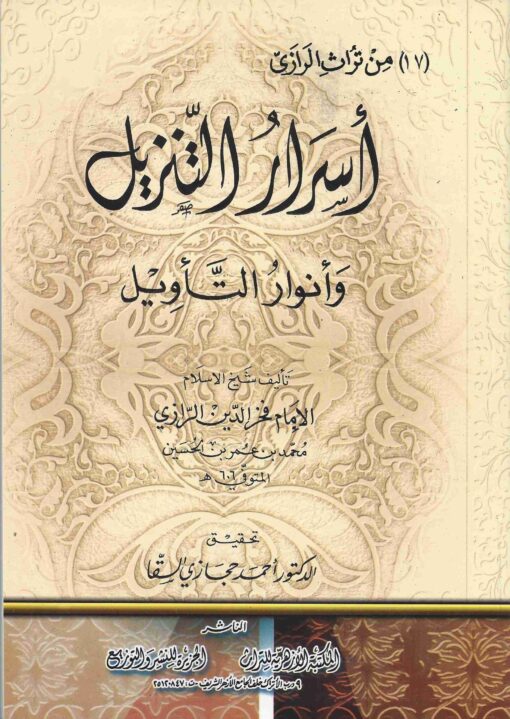 (١٧) مِنْ تُراثِ الرَازِىّ
أَسْرَارُ التَّنزيل
وَأنوارُ التَّأويْل
تأليف شيخ الاسلام
الإمام فخر الدّين الرّازي
محمّد بن عُمر بن الحُسَين
المتوفى ٦٠٦ هـ
تحقيق
الدكتور أحمد حجازي السقا
الناشر
المكتبة الأزهرية للتراث
الجزيرة للنشر والتوزيع
٩ درب الأتراك خلف الجامع الأزهر الشريف - ت: ٢٥١٢٠٨٤٧